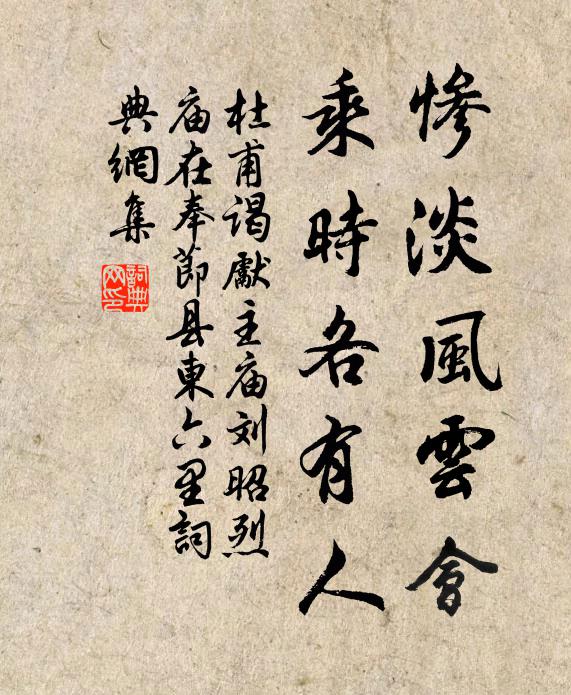 慘淡風雲會
乘時各有人
杜甫謁獻主庙刘昭烈
庙在奉節县東六里詞
典網集
詞典
网印